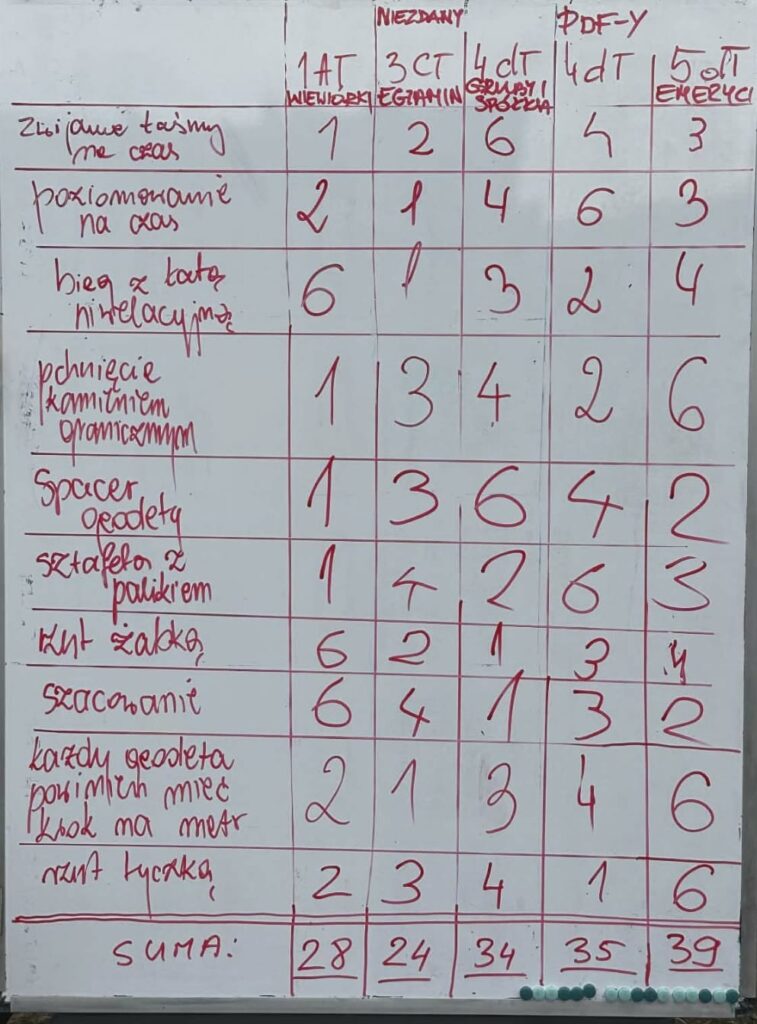 NIEZDANY PDF-Y
1AT 3CT 4dT 4dT 5dT
WIEWIÓRKI EGZAMIN GRUBY I SPÓŁKA EMERYCI
Zwijanie taśmy
na czas 1 2 6 4 3
poziomowanie
na czas 2 1 4 6 3
bieg z łatą
niwelacyjną 6 1 3 2 4
pchnięcie
kamieniem
granicznym 1 3 4 2 6
Spacer
geodety 1 3 6 4 2
sztafeta z
palikiem 1 4 2 6 3
rzut żabką 6 2 1 3 4
szacowanie 6 4 1 3 2
każdy geodeta
powinien mieć
krok na metr 2 1 3 4 6
rzut tyczką 2 3 4 1 6
SUMA: 28 24 34 35 39